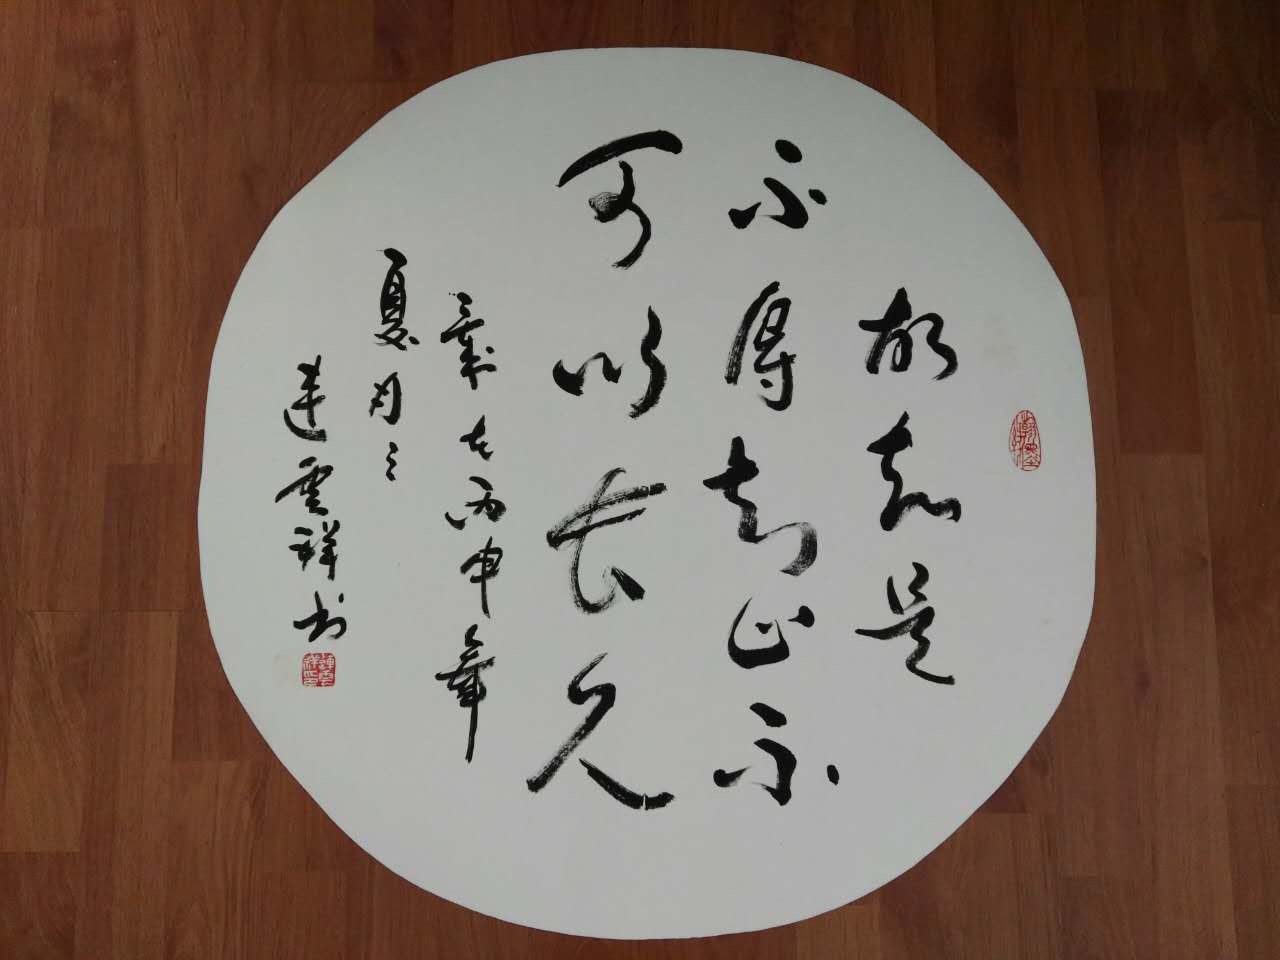 故知足
不辱知止不
可以长久
歲在丙申年
夏月之
連雲祥书